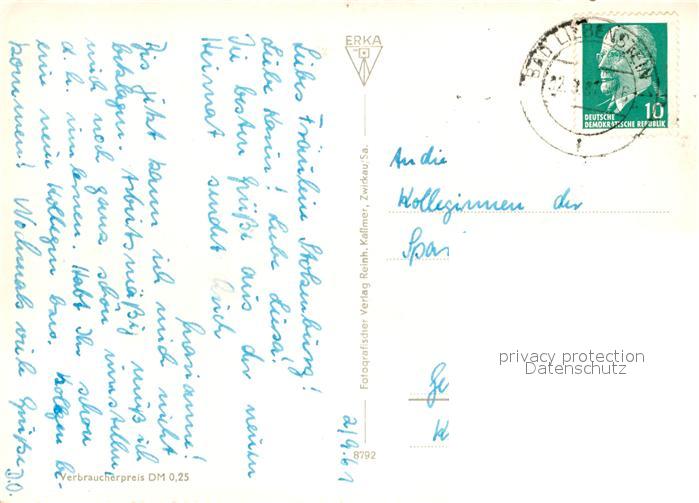 Liebes Fräulein Stolzenburg!
Liebe Karin! Liebe Luisa!
Die besten Grüße aus der neuen
Heimat sendet Euch
Marianne!
Bis jetzt kann ich mich nicht
beklagen. Arbeitsmäßig muß ich
mich noch ganz schön umstellen,
d. h. umlernen. Habt Ihr schon
eine neue Kollegin bzw. Kollegen be-
kommen? Nochmals viele Grüße D.O.
2/9.61
Verbraucherpreis DM 0,25
ERKA
Fotografischer Verlag Reinh. Kallmer, Zwickau/Sa.
8792
BAD LIEBENSTEIN
10
DEUTSCHE
DEMOKRATISCHE REPUBLIK
An die
Kolleginnen der
Spar
Ge
K
privacy protection
Datenschutz